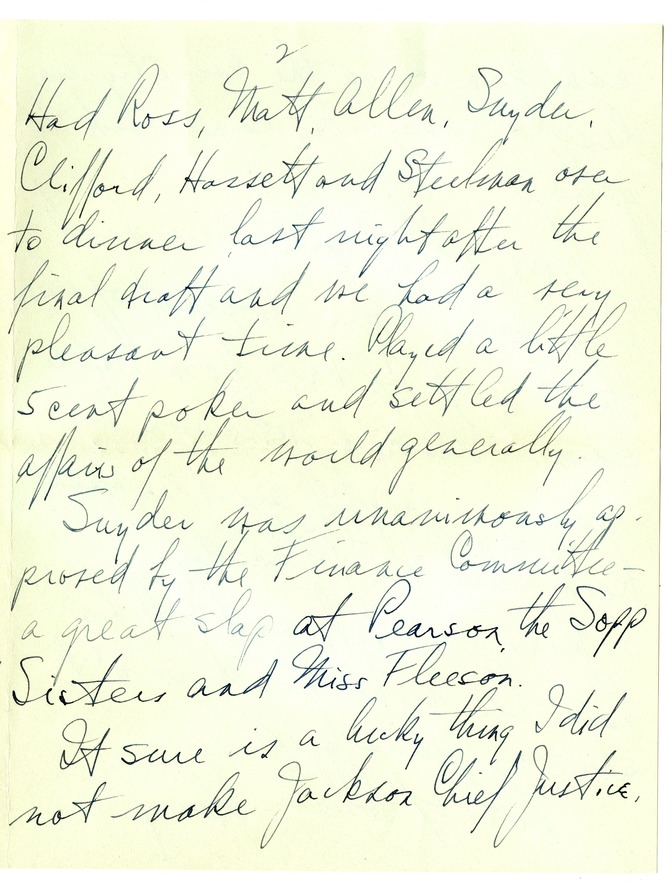 2
Had Ross, Matt, Allen, Snyder,
Clifford, Hassett and Steelman over
to dinner last night after the
final draft and we had a very
pleasant time. Played a little
5 cent poker and settled the
affairs of the world generally.
Snyder was unanimously ap-
proved by the Finance Committee—
a great slap at Pearson, the Sopp
Sisters and Miss Fleeson.
It sure is a lucky thing I did
not make Jackson Chief Justice.